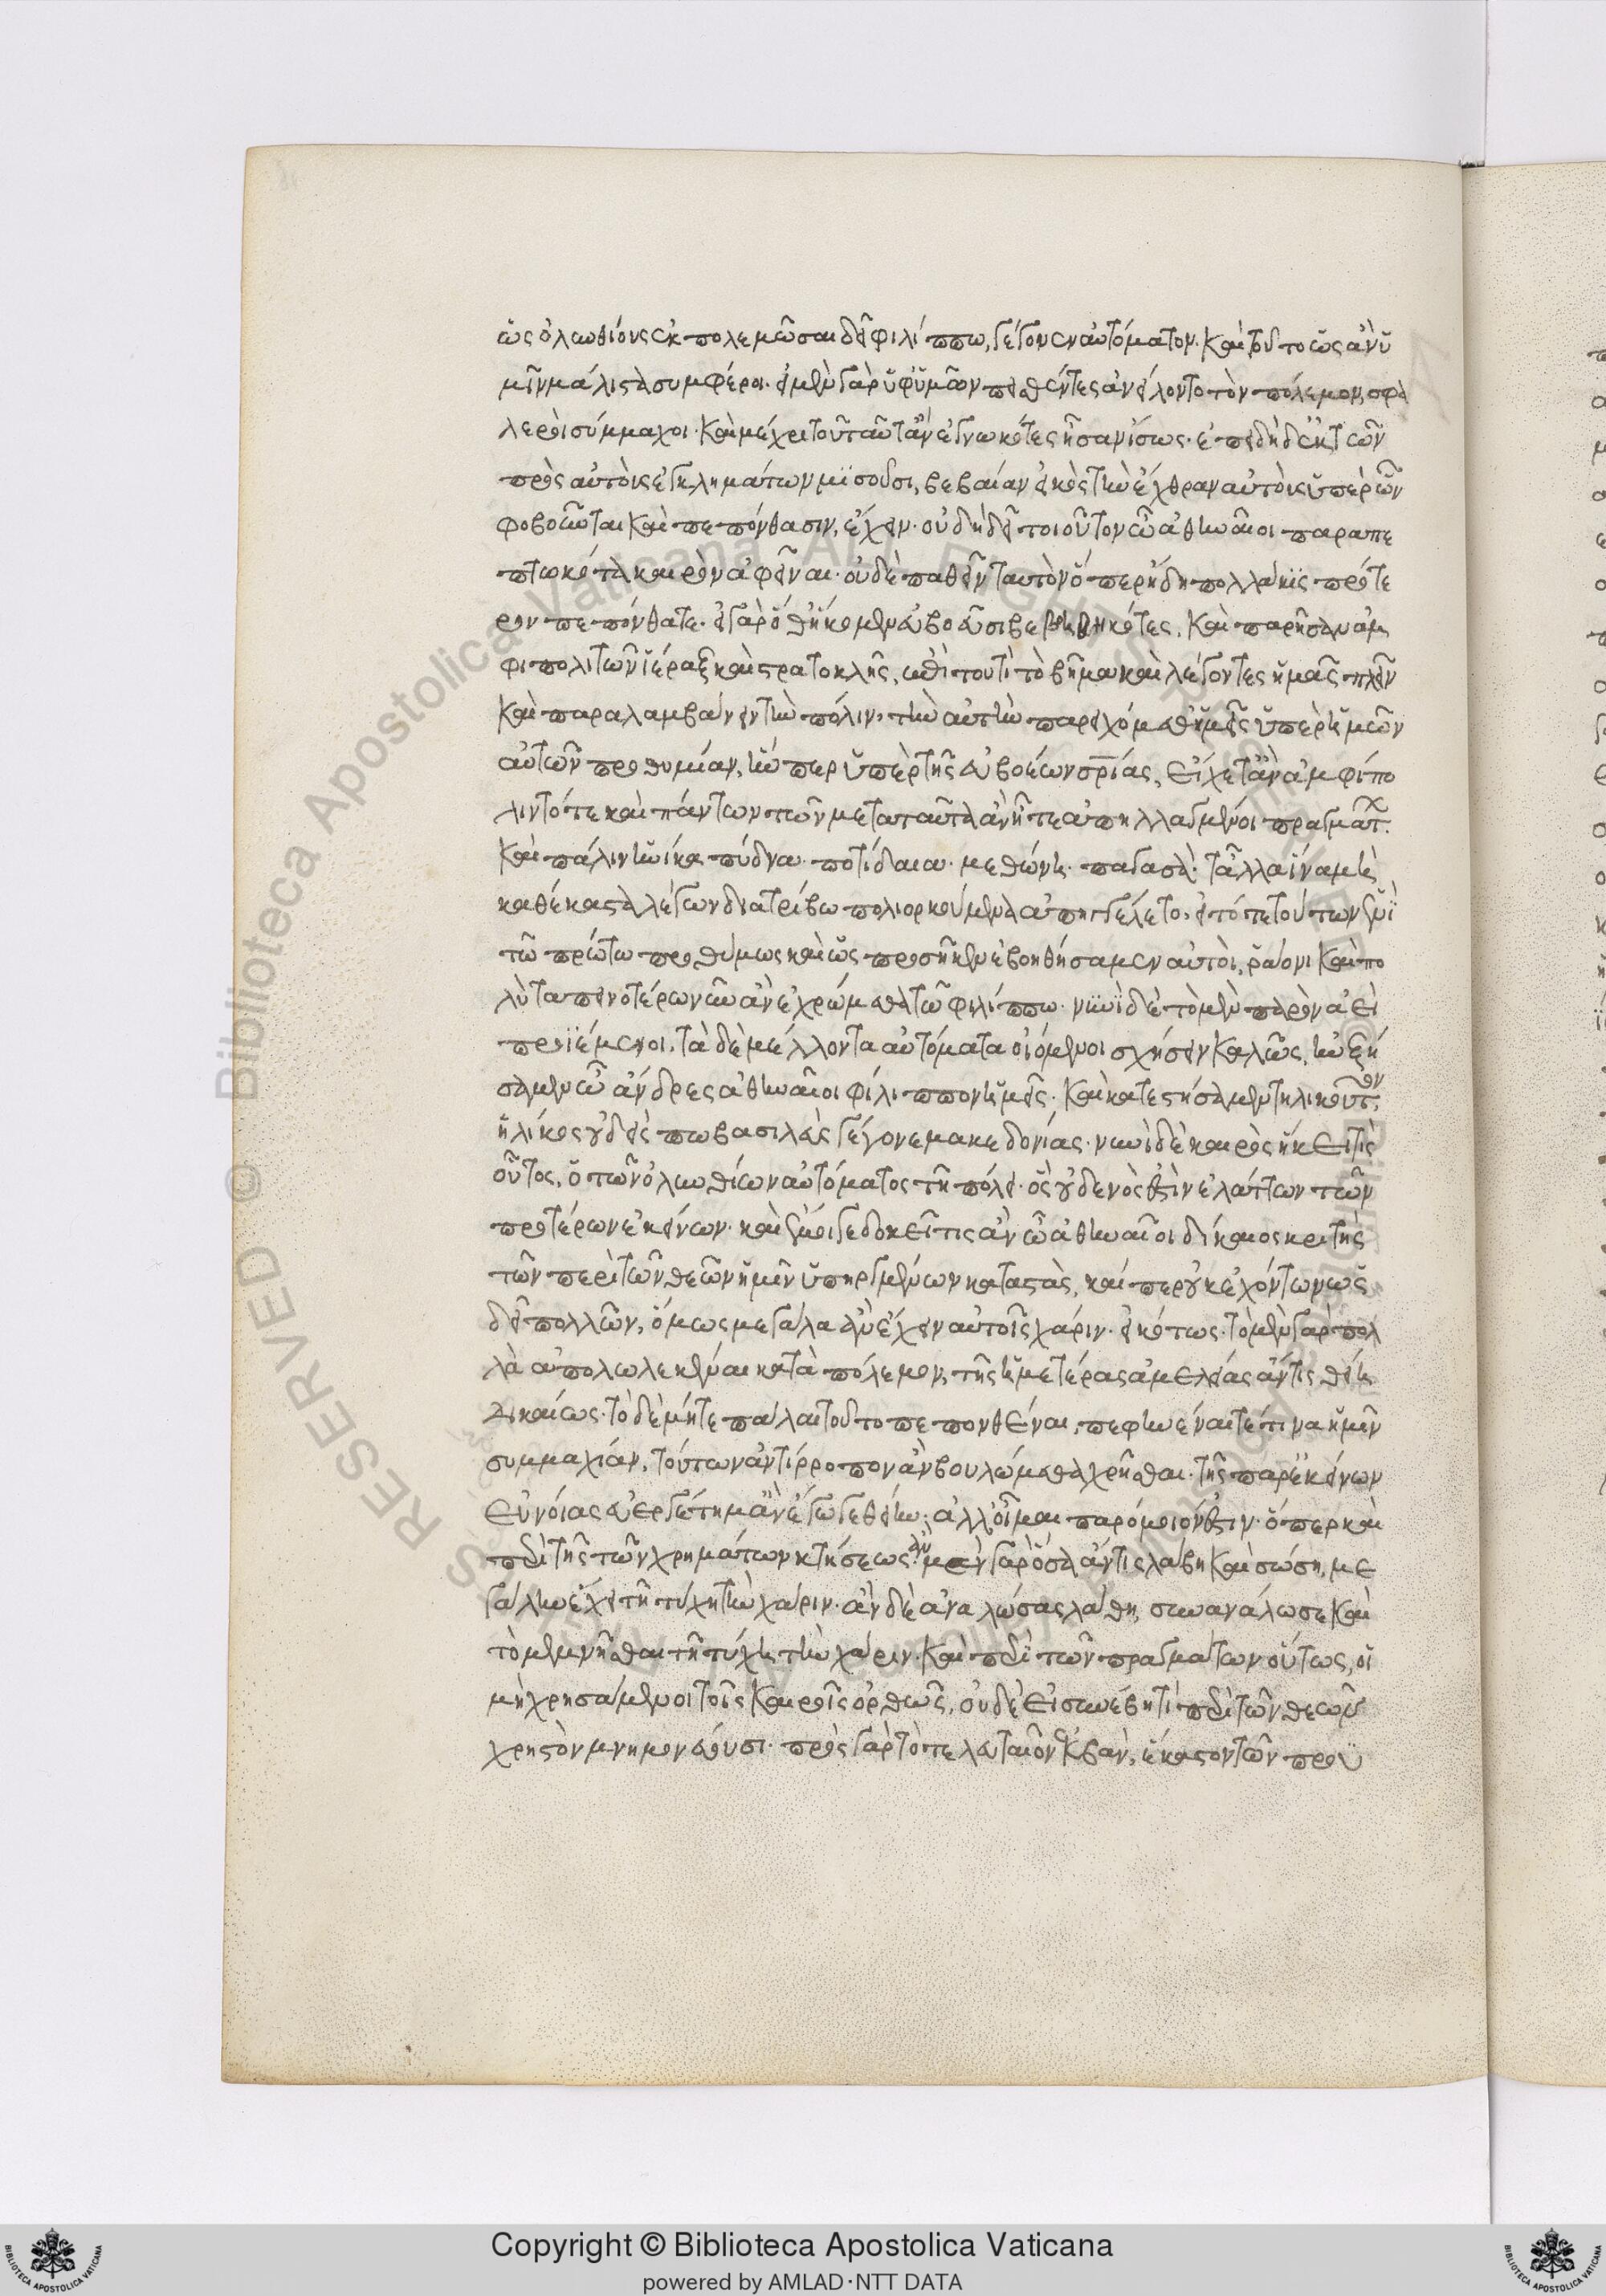 ὡς ὀλυνθίους ἐκπολεμῶσαι δεῖ φιλίππω, γέγονεν αὐτόματον· καὶ τοῦτο ὡς ἂν ὑ
μῖν μάλιστα συμφέροι· εἰ μὲν γὰρ ὑφ' ὑμῶν πεισθέντες ἀνείλοντο τὸν πόλεμον, σφα
λεροὶ σύμμαχοι· καὶ μέχρι του ταῦτ' ἂν ἐγνωκότες ἦσαν ἴσως· ἐπειδὴ δ' ἐκ τῶν
πρὸς αὐτοὺς ἐγκλημάτων μισοῦσι, βεβαίαν εἰκὸς τὴν ἔχθραν αὐτοὺς ὑπὲρ ὧν
φοβοῦνται καὶ πεπόνθασιν, ἔχειν· οὐ δὴ δεῖ τοιοῦτον ὦ ἀθηναῖοι παραπε
πτωκότα καιρὸν ἀφεῖναι· οὐδὲ παθεῖν ταυτὸν ὅπερ ἤδη πολλάκις πρότε
ρον πεπόνθατε· εἰ γὰρ ὅθ' ἥκομεν εὐβοεῦσι βεβοηθηκότες, καὶ παρῆσαν ἀμ
φιπολιτῶν ἱέραξ καὶ στρατοκλῆς, ἐπὶ τουτὶ τὸ βῆμα καὶ λέγοντες ἡμᾶς πλεῖν
καὶ παραλαμβάνειν τὴν πόλιν, τὴν αὐτὴν παρειχόμεθ' ἡμεῖς ὑπὲρ ἡμῶν
αὐτῶν προθυμίαν, ἥνπερ ὑπὲρ τῆς εὐβοέων σ̅ρ̅ίας, εἴχετ' ἂν ἀμφίπο
λιν τότε καὶ πάντων τῶν μετὰ ταῦτα ἂν ἦτε ἀπηλλαγμένοι πραγμάτ.
καὶ πάλιν ἡνίκα πύδνα· ποτίδαια· μεθώνη· παγασαί· τἆλλα ἵνα μὴ
καθ' έκαστα λέγων διατρίβω πολιορκούμενα ἀπηγγέλετο, εἰ τότε τούτων ἑνὶ
τῶ πρώτω προθύμως καὶ ὡς προσῆκεν ἐβοηθήσαμεν αὐτοὶ, ῥάονι καὶ πο
λὺ ταπεινοτέρω νῦν ἂν ἐχρώμεθα τῶ φιλίππω· νυνὶ δὲ τὸ μὲν παρὸν ἀεὶ
προϊέμενοι, τὰ δὲ μέλλοντα αὐτόματα οἰόμενοι σχήσειν καλῶς, ηὐξή
σαμεν ὦ ἄνδρες ἀθηναῖοι φίλιππον ἡμεῖς· καὶ κατεστήσαμεν τηλικοῦτον,
ἡλίκος οὐδείς πω βασιλεὺς γέγονε μακεδονίας· νυνὶ δὲ καιρὸς ἥκει τις
οὗτος, ὁ τῶν ὀλυνθίων αὐτόματος τῆ πόλει· ὅς οὐδενός ἐστιν ἐλάττων τῶν
προτέρων ἐκείνων· καὶ ἔμοιγε δοκεῖ τις ἂν ὦ ἀθηναῖοι δίκαιος κριτὴς
τῶν περὶ τῶν θεῶν ἡμῖν ὑπηργμένων καταστὰς, καίπερ οὐκ ἐχόντων ὡς
δεῖ πολλῶν, ὅμως μεγάλα ἂν ἔχειν αὐτοῖς χάριν· εἰκότως· τὸ μὲν γὰρ πολ
λὰ ἀπολωλεκέναι κατὰ πόλεμον, τῆς ἡμετέρας ἀμελείας ἄν τις θείη
δικαίως· τὸ δὲ μήτε πάλαι τοῦτο πεπονθέναι, πεφηνέναι τέ τινα ἡμῖν
συμμαχίαν, τούτων ἀντίρροπον ἂν βουλώμεθα χρῆσθαι· τῆς παρ' ἐκείνων
εὐνοίας εὐεργέτημ' ἂν ἔγωγε θείην· ἀλλ' οἶμαι παρόμοιόν ἐστιν· ὅπερ καὶ
περὶ τῆς τῶν χρημάτων κτήσεως· ἂν μὲν γὰρ ὅσα ἄν τις λάβη καὶ σώση, με
γάλην ἔχει τῆ τύχη τὴν χάριν· ἂν δὲ ἀναλώσας λάθη, συνανάλωσε καὶ
τὸ μεμνῆσθαι τῆ τύχη τὴν χάριν· καὶ περὶ τῶν πραγμάτων οὕτως, οἱ
μὴ χρησάμενοι τοῖς καιροῖς ὀρθῶς, οὐδὲ εἰ συνέβη τι περὶ τῶν θεῶν
χρηστὸν μνημονεύουσι· πρὸς γὰρ τὸ τελευταῖον ἐκβὰν, ἕκαστον τῶν προϋ
Copyright © Biblioteca Apostolica Vaticana
powered by AMLAD·NTT DATA